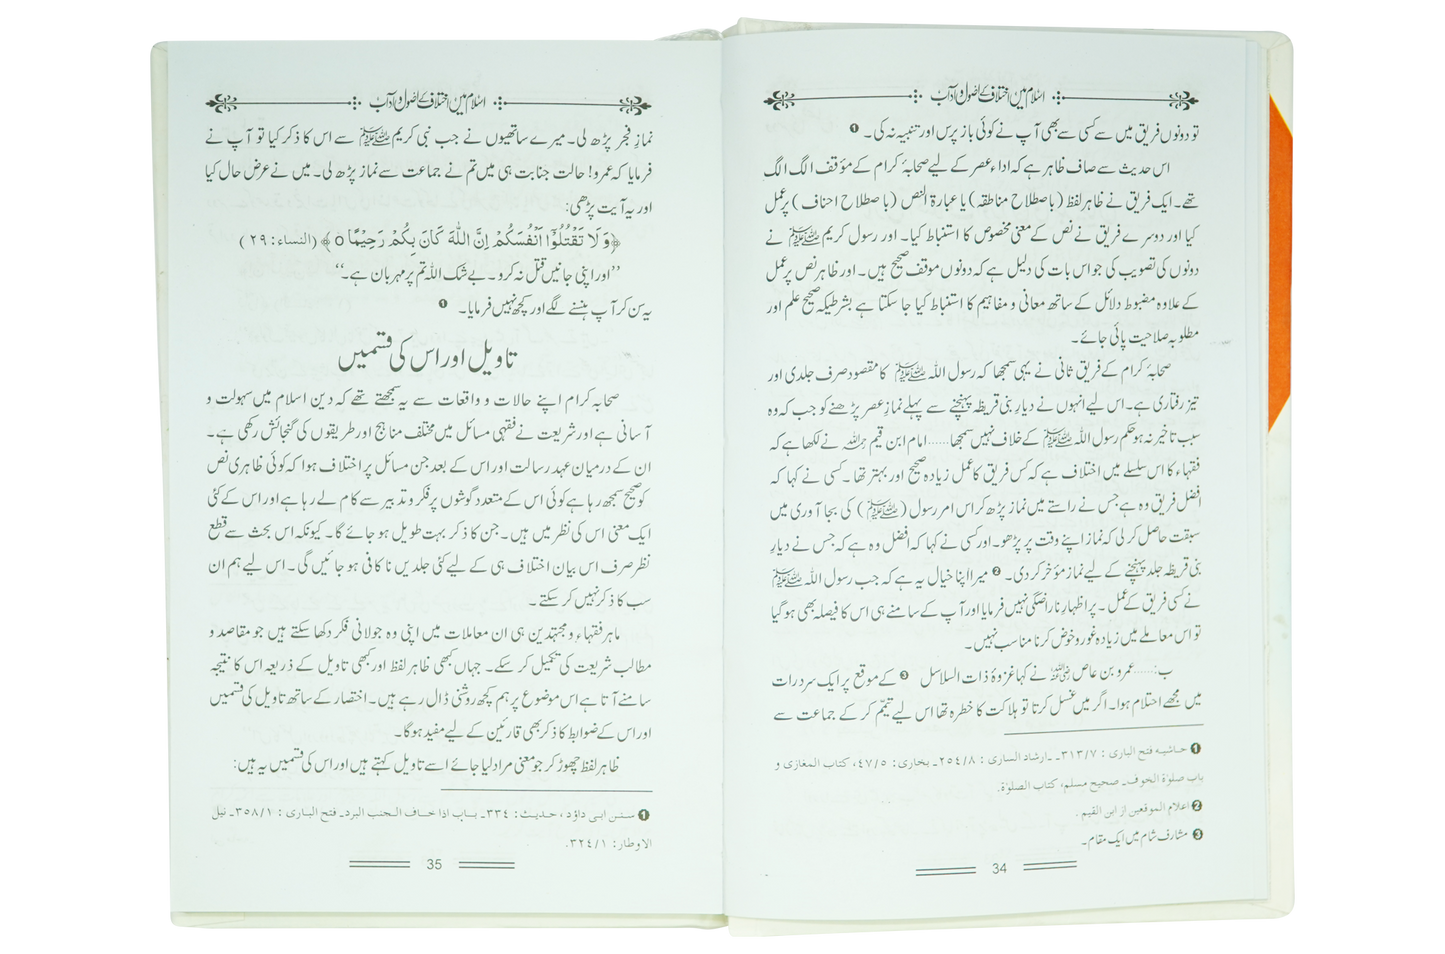 اسلام میں اختلاف کے اصول و آداب
تو دونوں فریق میں سے کسی سے بھی آپ نے کوئی باز پرس اور تنبیہ نہ کی۔ ❶
اس حدیث سے صاف ظاہر ہے کہ اداءِ عصر کے لیے صحابۂ کرام کے مؤقف الگ الگ
تھے۔ ایک فریق نے ظاہر لفظ (باصطلاح مناطقہ) یا عبارۃ النص (باصطلاح احناف) پر عمل
کیا اور دوسرے فریق نے نص کے معنی مخصوص کا استنباط کیا۔ اور رسول کریم ﷺ نے
دونوں کی تصویب کی جو اس بات کی دلیل ہے کہ دونوں موقف صحیح ہیں۔ اور ظاہر نص پر عمل
کے علاوہ مضبوط دلائل کے ساتھ معانی و مفاہیم کا استنباط کیا جا سکتا ہے بشرطیکہ صحیح علم اور
مطلوبہ صلاحیت پائی جائے۔
صحابۂ کرام کے فریق ثانی نے یہی سمجھا کہ رسول اللہ ﷺ کا مقصود صرف جلدی اور
تیز رفتاری ہے۔ اس لیے انہوں نے دیارِ بنی قریظہ پہنچنے سے پہلے نمازِ عصر پڑھنے کو جب کہ وہ
سبب تاخیر نہ ہو حکم رسول اللہ ﷺ کے خلاف نہیں سمجھا...... امام ابن قیم رحمہ اللہ نے لکھا ہے کہ
فقہاء کا اس سلسلے میں اختلاف ہے کہ کس فریق کا عمل زیادہ صحیح اور بہتر تھا۔ کسی نے کہا کہ
افضل فریق وہ ہے جس نے راستے میں نماز پڑھ کر اس امر رسول (ﷺ) کی بجا آوری میں
سبقت حاصل کر لی کہ نماز اپنے وقت پر پڑھو۔ اور کسی نے کہا کہ افضل وہ ہے کہ جس نے دیارِ
بنی قریظہ جلد پہنچنے کے لیے نماز مؤخر کر دی۔ ❷ میرا اپنا خیال یہ ہے کہ جب رسول اللہ ﷺ
نے کسی فریق کے عمل۔ پر اظہارِ ناراضگی نہیں فرمایا اور آپ کے سامنے ہی اس کا فیصلہ بھی ہو گیا
تو اس معاملے میں زیادہ غور و خوض کرنا مناسب نہیں۔
ب:...... عمرو بن عاص رضی اللہ عنہ نے کہا غزوۂ ذات السلاسل ❸ کے موقع پر ایک سرد رات
میں مجھے احتلام ہوا۔ اگر میں غسل کرتا تو ہلاکت کا خطرہ تھا اس لیے تیمّم کر کے جماعت سے
❶ حاشیه فتح الباری : ٣١٣/٧ـ ارشاد الساری : ٢٥٤/٨ـ بخاری : ٤٧/٥، کتاب المغازی و
باب صلوٰة الخوف۔ صحیح مسلم، کتاب الصلوٰة.
❷ اعلام الموقعین از ابن القیم.
❸ مشارف شام میں ایک مقام۔
34
اسلام میں اختلاف کے اصول و آداب
نمازِ فجر پڑھ لی۔ میرے ساتھیوں نے جب نبی کریم ﷺ سے اس کا ذکر کیا تو آپ نے
فرمایا کہ عمرو! حالت جنابت ہی میں تم نے جماعت سے نماز پڑھ لی۔ میں نے عرض حال کیا
اور یہ آیت پڑھی:
﴿وَلَا تَقْتُلُوْٓا اَنْفُسَكُمْ اِنَّ اللّٰهَ كَانَ بِكُمْ رَحِيْمًا ٥﴾ (النساء: ٢٩)
’’اور اپنی جانیں قتل نہ کرو۔ بے شک اللہ تم پر مہربان ہے۔‘‘
یہ سن کر آپ ہنسنے لگے اور کچھ نہیں فرمایا۔ ❶
تاویل اور اس کی قسمیں
صحابہ کرام اپنے حالات و واقعات سے یہ سمجھتے تھے کہ دین اسلام میں سہولت و
آسانی ہے اور شریعت نے فقہی مسائل میں مختلف مناہج اور طریقوں کی گنجائش رکھی ہے۔
ان کے درمیان عہد رسالت اور اس کے بعد جن مسائل پر اختلاف ہوا کہ کوئی ظاہری نص
کو صحیح سمجھ رہا ہے کوئی اس کے متعدد گوشوں پر فکر و تدبیر سے کام لے رہا ہے اور اس کے کئی
ایک معنی اس کی نظر میں ہیں۔ جن کا ذکر بہت طویل ہو جائے گا۔ کیونکہ اس بحث سے قطع
نظر صرف اس بیان اختلاف ہی کے لیے کئی جلدیں ناکافی ہو جائیں گی۔ اس لیے ہم ان
سب کا ذکر نہیں کر سکتے۔
ماہر فقہاء و مجتہدین ہی ان معاملات میں اپنی وہ جولانی فکر دکھا سکتے ہیں جو مقاصد و
مطالب شریعت کی تکمیل کر سکے۔ جہاں کبھی ظاہر لفظ اور کبھی تاویل کے ذریعہ اس کا نتیجہ
سامنے آتا ہے اس موضوع پر ہم کچھ روشنی ڈال رہے ہیں۔ اختصار کے ساتھ تاویل کی قسمیں
اور اس کے ضوابط کا ذکر بھی قارئین کے لیے مفید ہو گا۔
ظاہر لفظ چھوڑ کر جو معنی مراد لیا جائے اسے تاویل کہتے ہیں اور اس کی قسمیں یہ ہیں:
❶ سنن ابی داؤد ، حدیث : ٣٣٤ـ باب اذا خاف الجنب البرد۔ فتح الباری : ٣٥٨/١ـ نیل
الاوطار: ٣٢٤/١.
35